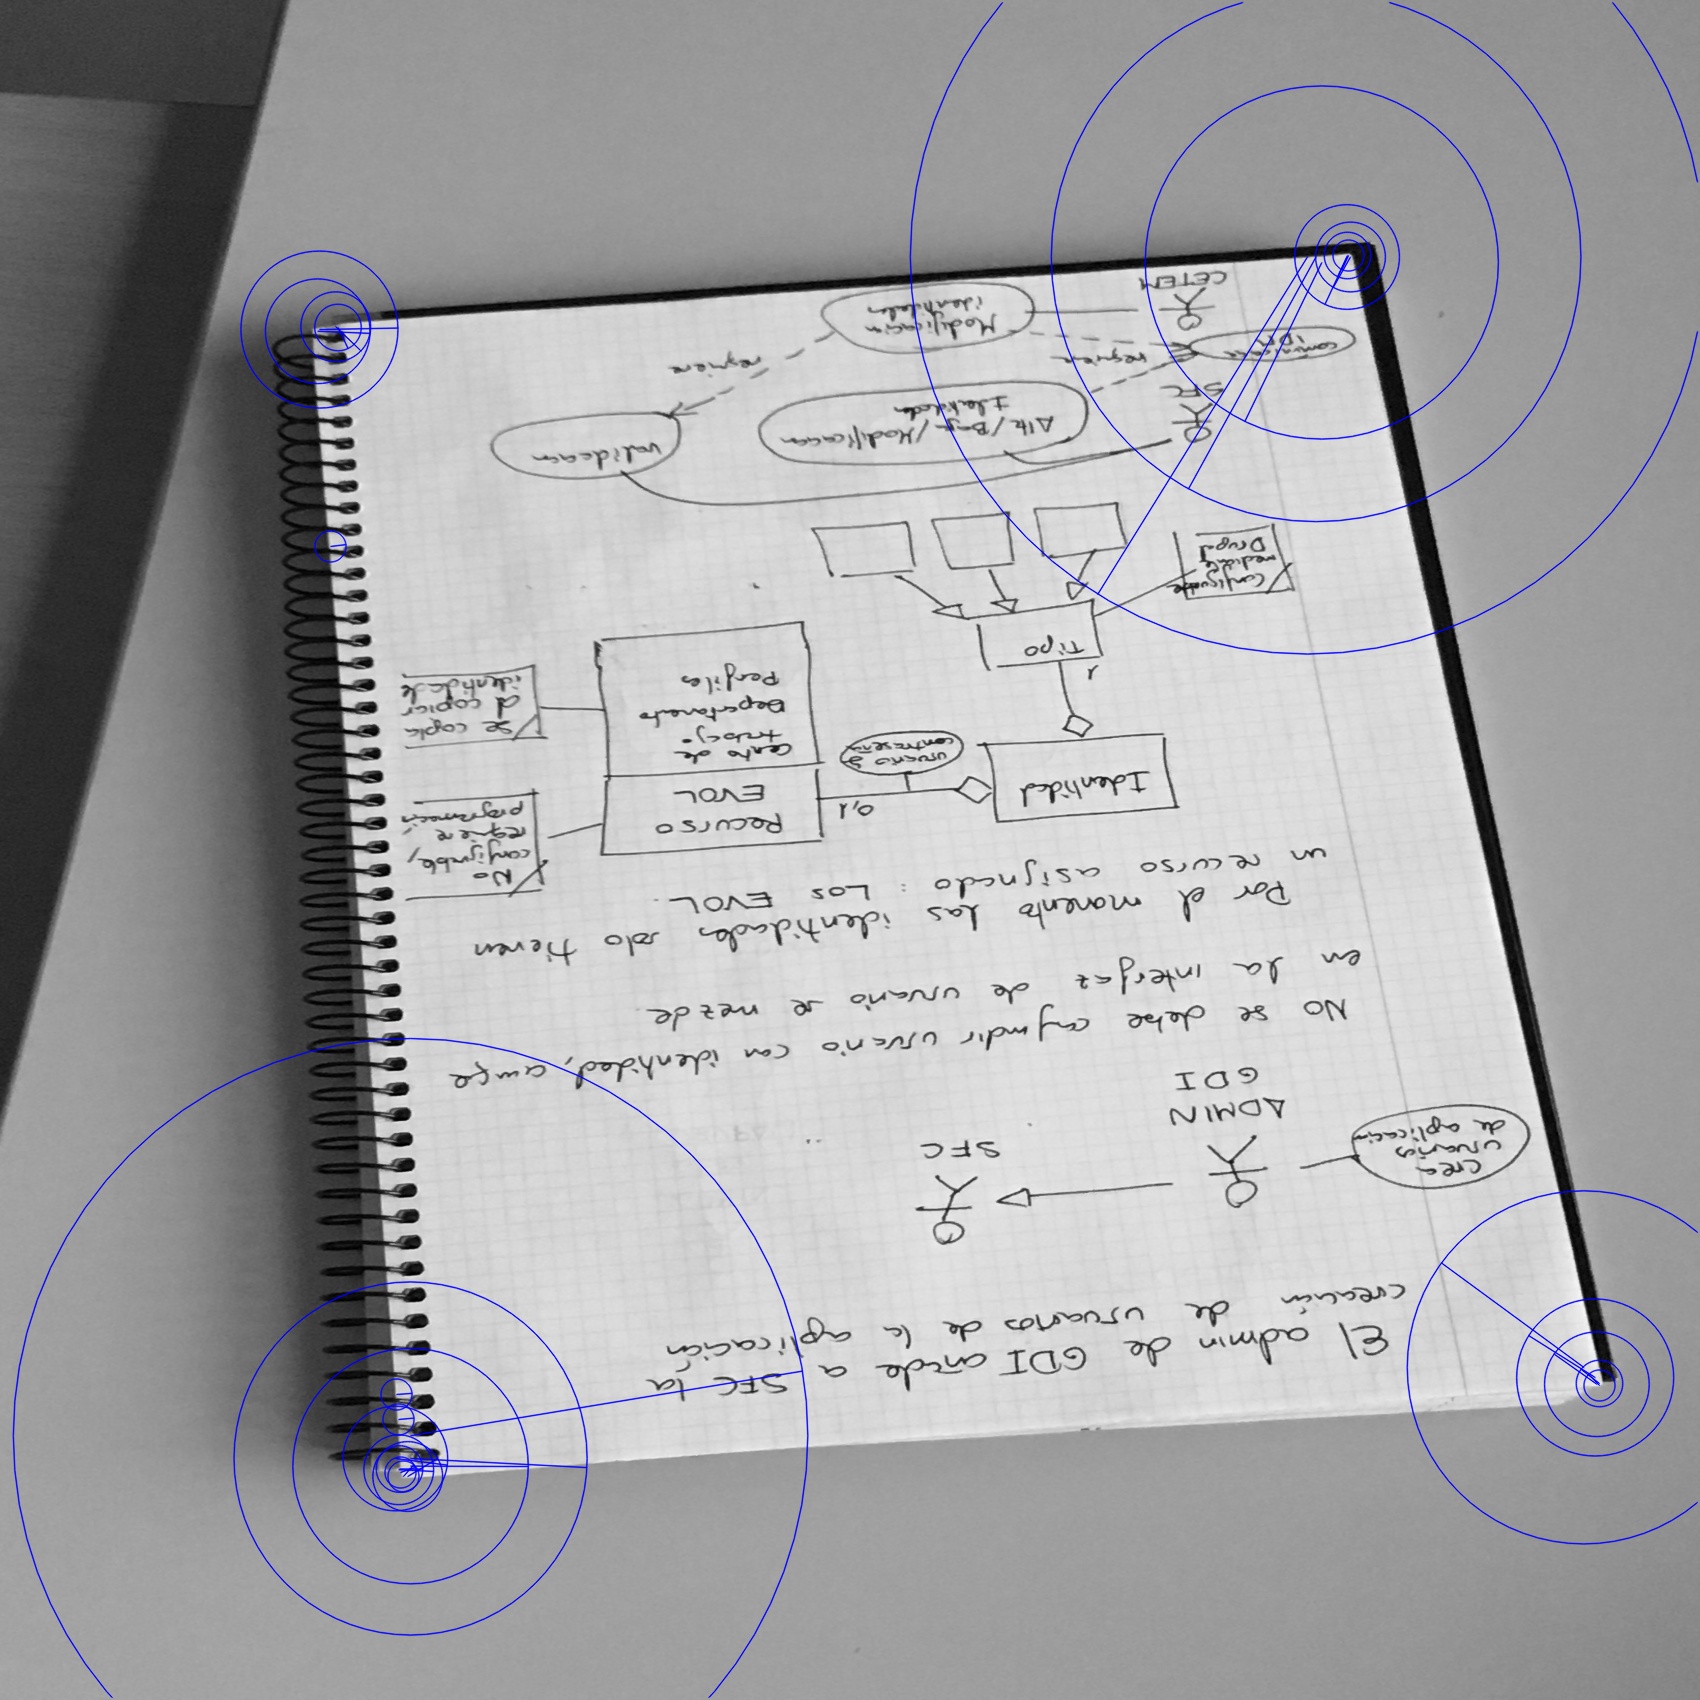 El admin de GDI añade a SFC la
creación de usuarios de la aplicación
SFC
ADMIN
GDI
crea
usuarios
de aplicación
No se debe confundir usuario con identidad, aunque
en la interfaz de usuario se mezcle
Por el momento las identidades solo tienen
un recurso asignado: Los EVOL.
Identidad
0,1
usuario y
contraseña
Recurso
EVOL
Centro de
trabajo
Departamento
Perfiles
No
configurable,
requiere
programación
Se copia
al copiar
identidade
1
Tipo
Configurable
mediante
Drupal
SFC
Alta/Baja/Modificación
Identidades
validación
requiere
requiere
CETEM
Modificación
identidades